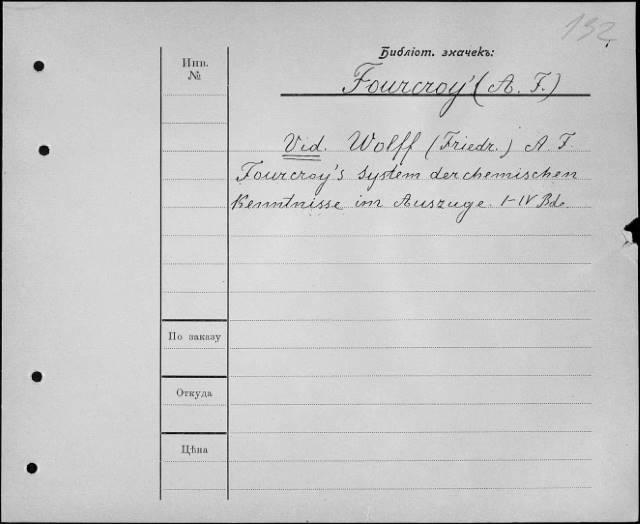 132
Библіот. значекъ:
Инв.
№
Fourcroy' (A. F.)
Vid. Wolff (Friedr.) A. F.
Fourcroy's System der chemischen
Kenntnisse im Auszuge. I-IV Bde.
По заказу
Откуда
Цѣна